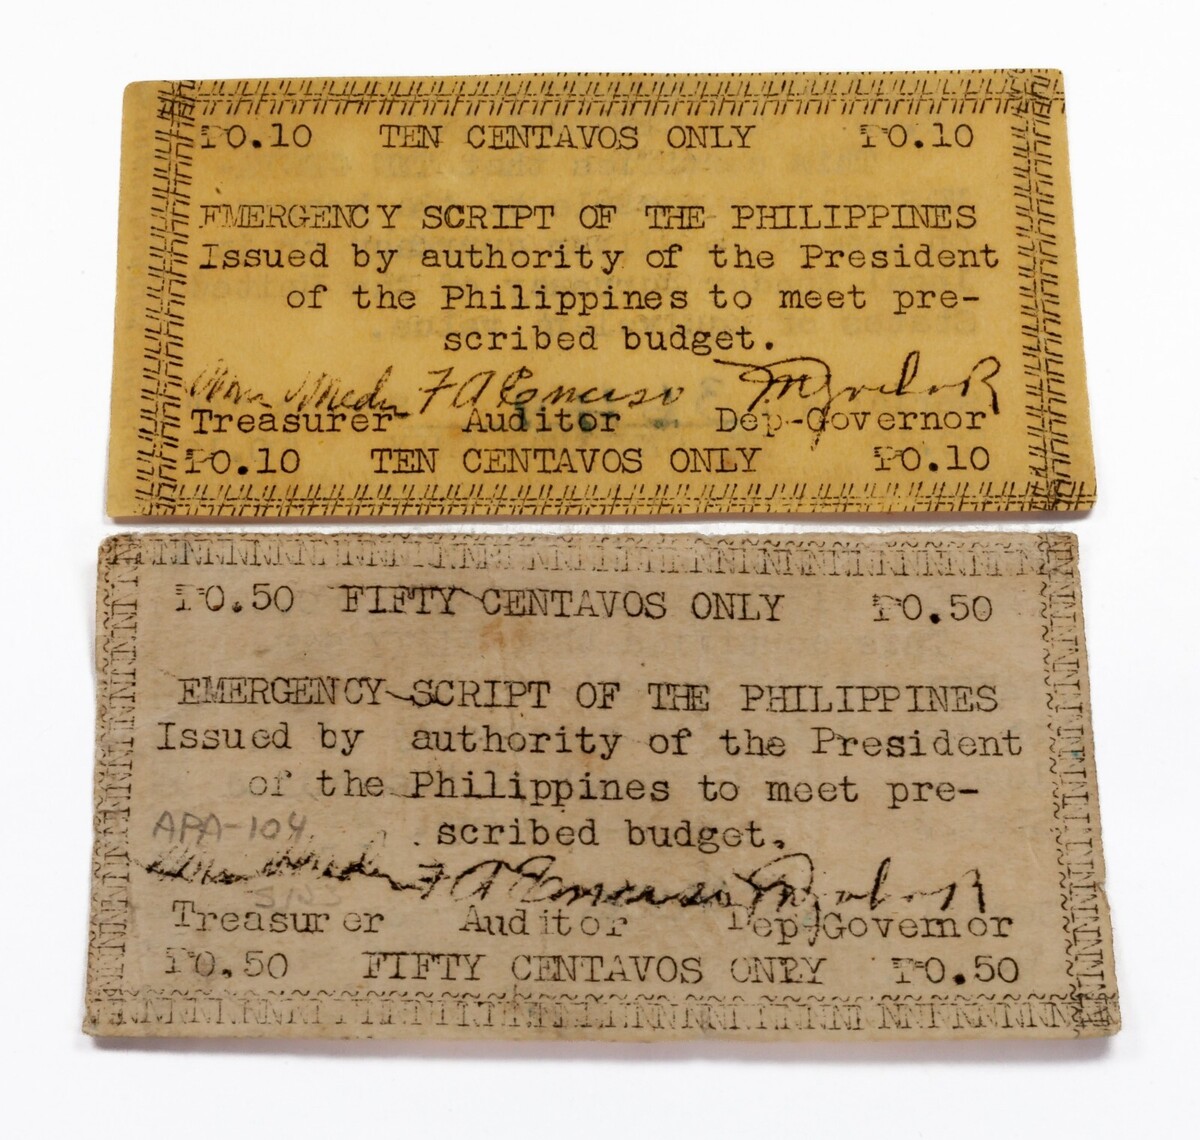 ₱0.10 TEN CENTAVOS ONLY ₱0.10
EMERGENCY SCRIPT OF THE PHILIPPINES
Issued by authority of the President
of the Philippines to meet pre-
scribed budget.
Treasurer Auditor Dep-Governor
₱0.10 TEN CENTAVOS ONLY ₱0.10
₱0.50 FIFTY CENTAVOS ONLY ₱0.50
EMERGENCY SCRIPT OF THE PHILIPPINES
Issued by authority of the President
of the Philippines to meet pre-
APA-104
scribed budget.
Treasurer Auditor Dep-Governor
₱0.50 FIFTY CENTAVOS ONLY ₱0.50